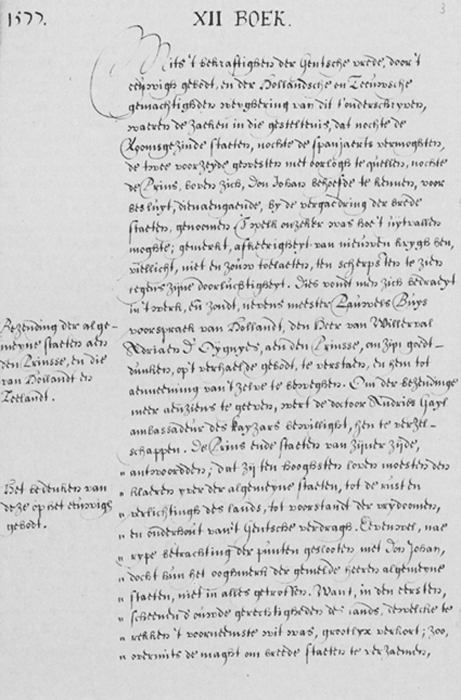 1577.
XII BOEK.
3
Mits 't bekraftighen der Gentsche vrede, door 't
eeuwigh gebodt, en der Hollandsche en Zeeuwsche
gemachtighden weyghering van dit t'onderschryven,
waeren de zaeken in die gesteltenis, dat nochte de
Roomsgezinde staeten, nochte de Spanjaerts vermoghten,
de twee voorzeyde gewesten met oorlogh te quellen, nochte
de Prins, boven zich, Don Johan behoefde te kennen, voor
besluyt, dienaengaende, by de vergaedring der breede
staeten, genoemen. 't welk onzeker was hoe 't uytvallen
moghte; gemerkt, afkeerigheyt van nieuwen krygh hen,
wellicht, niet en zouw toelaeten, ten scherpsten te zien
tegens zijne doorluchtigheyt. Dies vondt men zich bedraeyt
in 't werk, en zondt, nevens meester Pauwels Buys
voorspraek van Hollandt, den Heer van Willerval
Adriaen d' Oignyes, aen den Prinsse, om zijn goedt-
dunken, op 't verhaelde gebodt, te verstaen, en hem tot
aenneeming van 't zelve te beweghen. Om der bezendinge
meer aenziens te geeven, wert de doctoor Andries Gayl
ambassadeur des Kayzars bewillight, hen te verzel-
schappen. De Prins ende staeten van zijner zijde,
" antwoordden; dat zij ten hooghsten loven moesten den
" klaeren yver der algemeyne staeten, tot de rust en
" verlichtingh des lands, tot voorstandt der vrydoomen,
" en onderhout van 't Gentsche verdragh. Eevenwel, nae
" rype betrachting der punten geslooten met Don Johan,
" docht hun het ooghmerk der gemelde heeren algemeyne
" staeten, niet in alles getroffen. Want, in den eersten,
" scheenen d'ouwde gerechtigheden des lands, dewelke te
" rekken 't voorneemste wit was, grootlyx verkort; zoo,
" overmits de maght om breede staeten te verzaemen,
Bezending der alge-
meyne staeten aen
den Prinsse, en die
van Hollandt en
Zeelandt.
Het bedenken van
deze op het eeuwigh
gebodt.